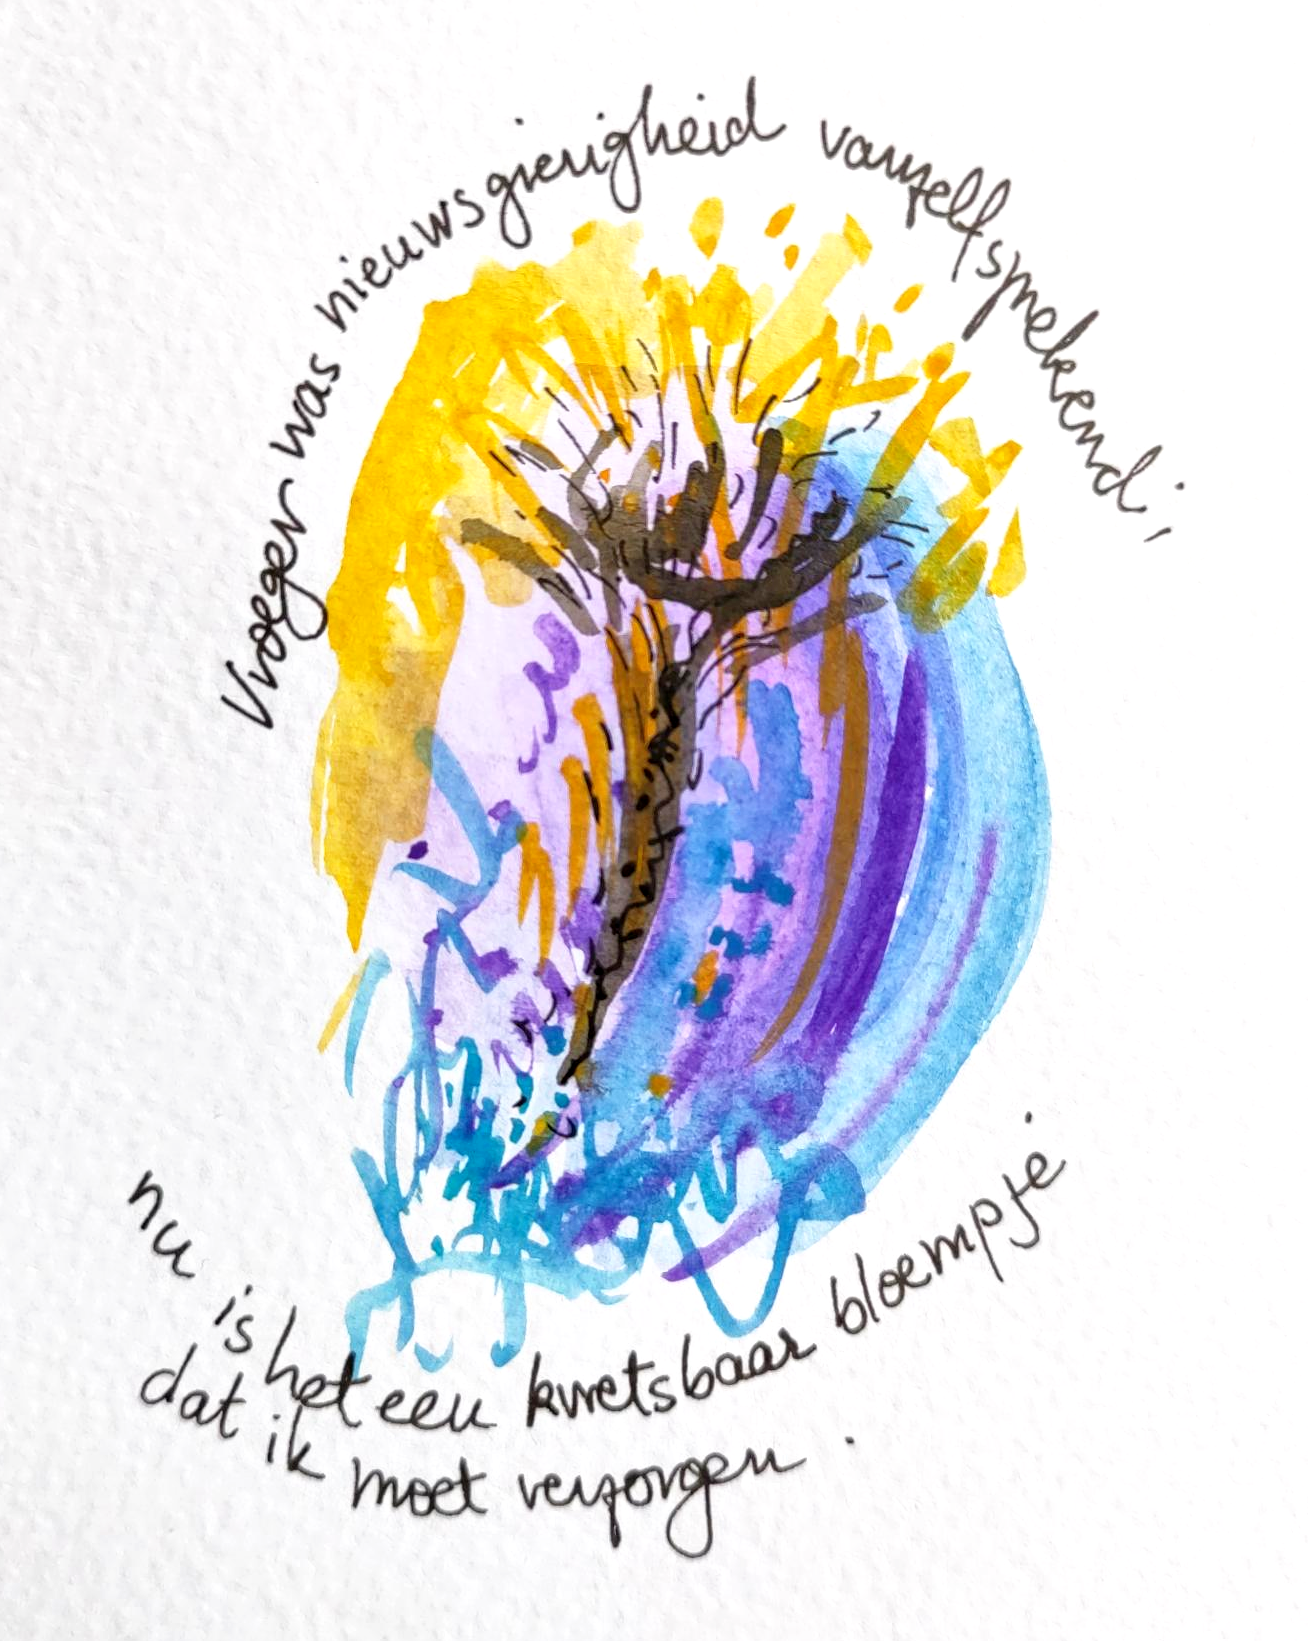 Vroeger was nieuwsgierigheid vanzelfsprekend;
nu is het een kwetsbaar bloempje
dat ik moet verzorgen.